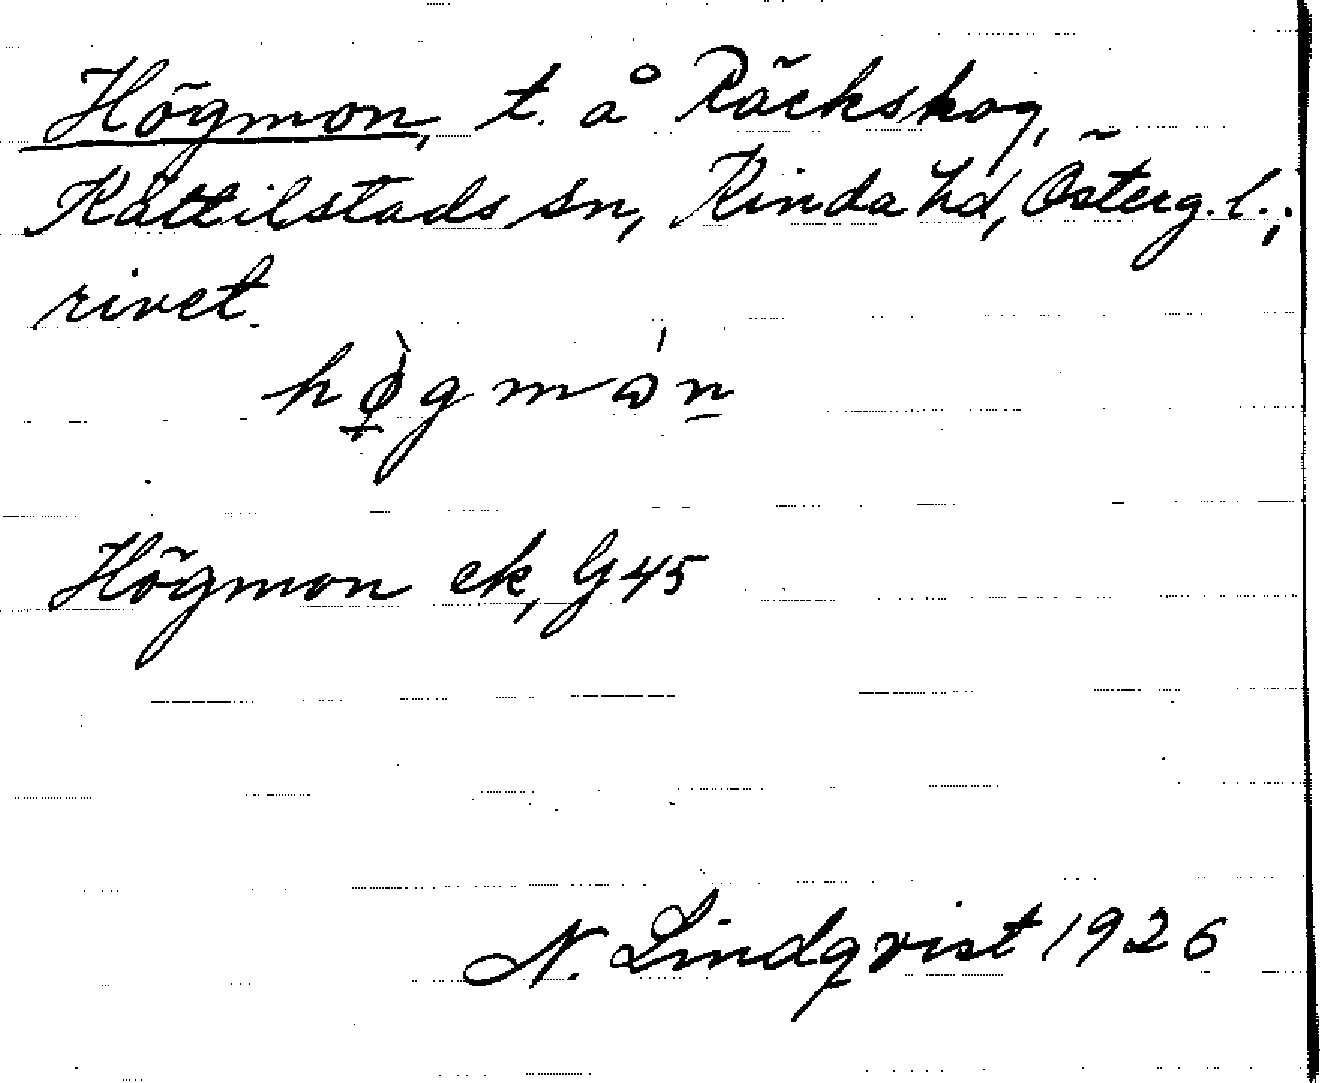 Högmon, t. å Räckskog,
Kättilstads sn, Kinda hd, Österg. l.;
rivet.
Högmon ek, G 45
N. Lindqvist 1926